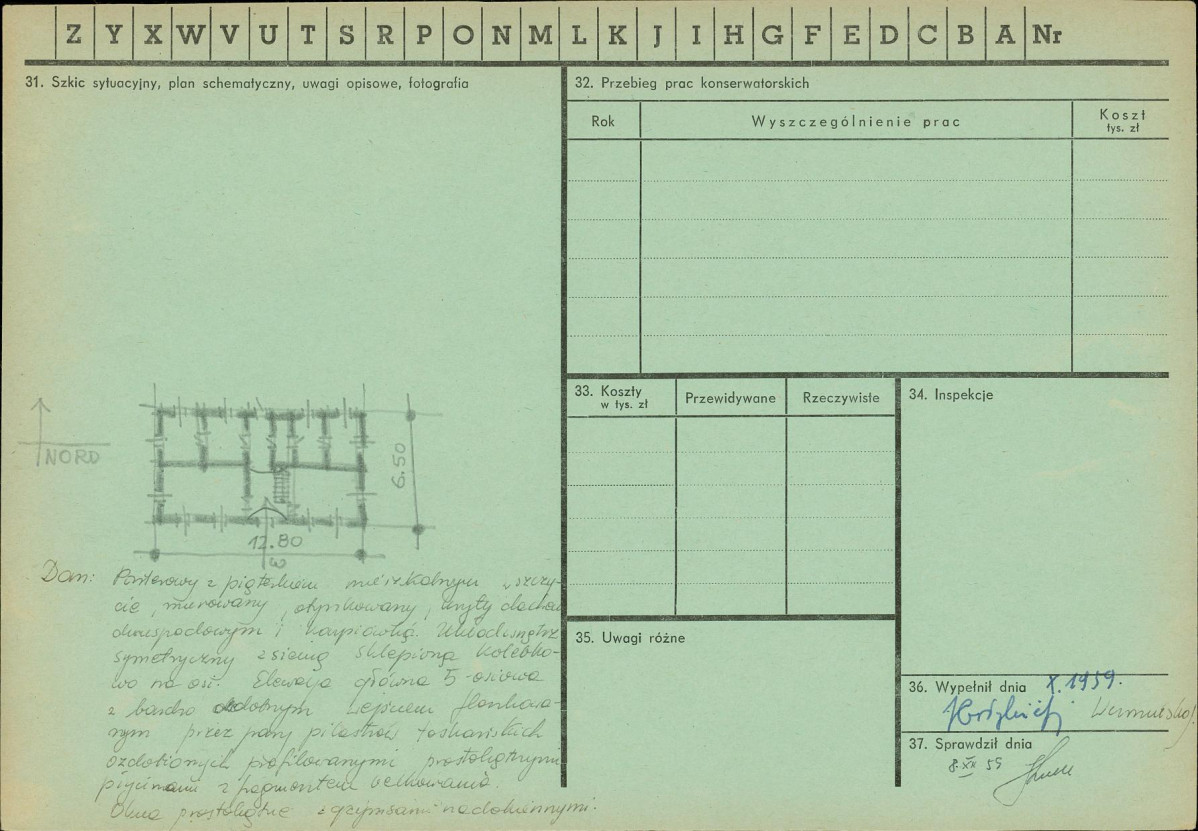 Z Y X W V U T S R P O N M L K J I H G F E D C B A Nr
31. Szkic sytuacyjny, plan schematyczny, uwagi opisowe, fotografia
NORD
6.50
12.80
Dom: Parterowy z piąterkiem mieszkalnym w szczy-
cie, murowany, otynkowany, kryty dachem
dwuspadowym i karpiówką. Układ wnętrz
symetryczny z sienią sklepioną kolebko-
wo na osi. Elewacja główna 5-osiowa
z bardzo ozdobnym wejściem flankowa-
nym przez pary pilastrów toskańskich
ozdobionych profilowanymi prostokątnymi
płycinami z fragmentem belkowania.
Okna prostokątne z gzymsami nadokiennymi.
32. Przebieg prac konserwatorskich
Rok
Wyszczególnienie prac
Koszt
tys. zł
33. Koszty
w tys. zł
Przewidywane
Rzeczywiste
34. Inspekcje
35. Uwagi różne
36. Wypełnił dnia X.1959.
37. Sprawdził dnia
8.XII 59